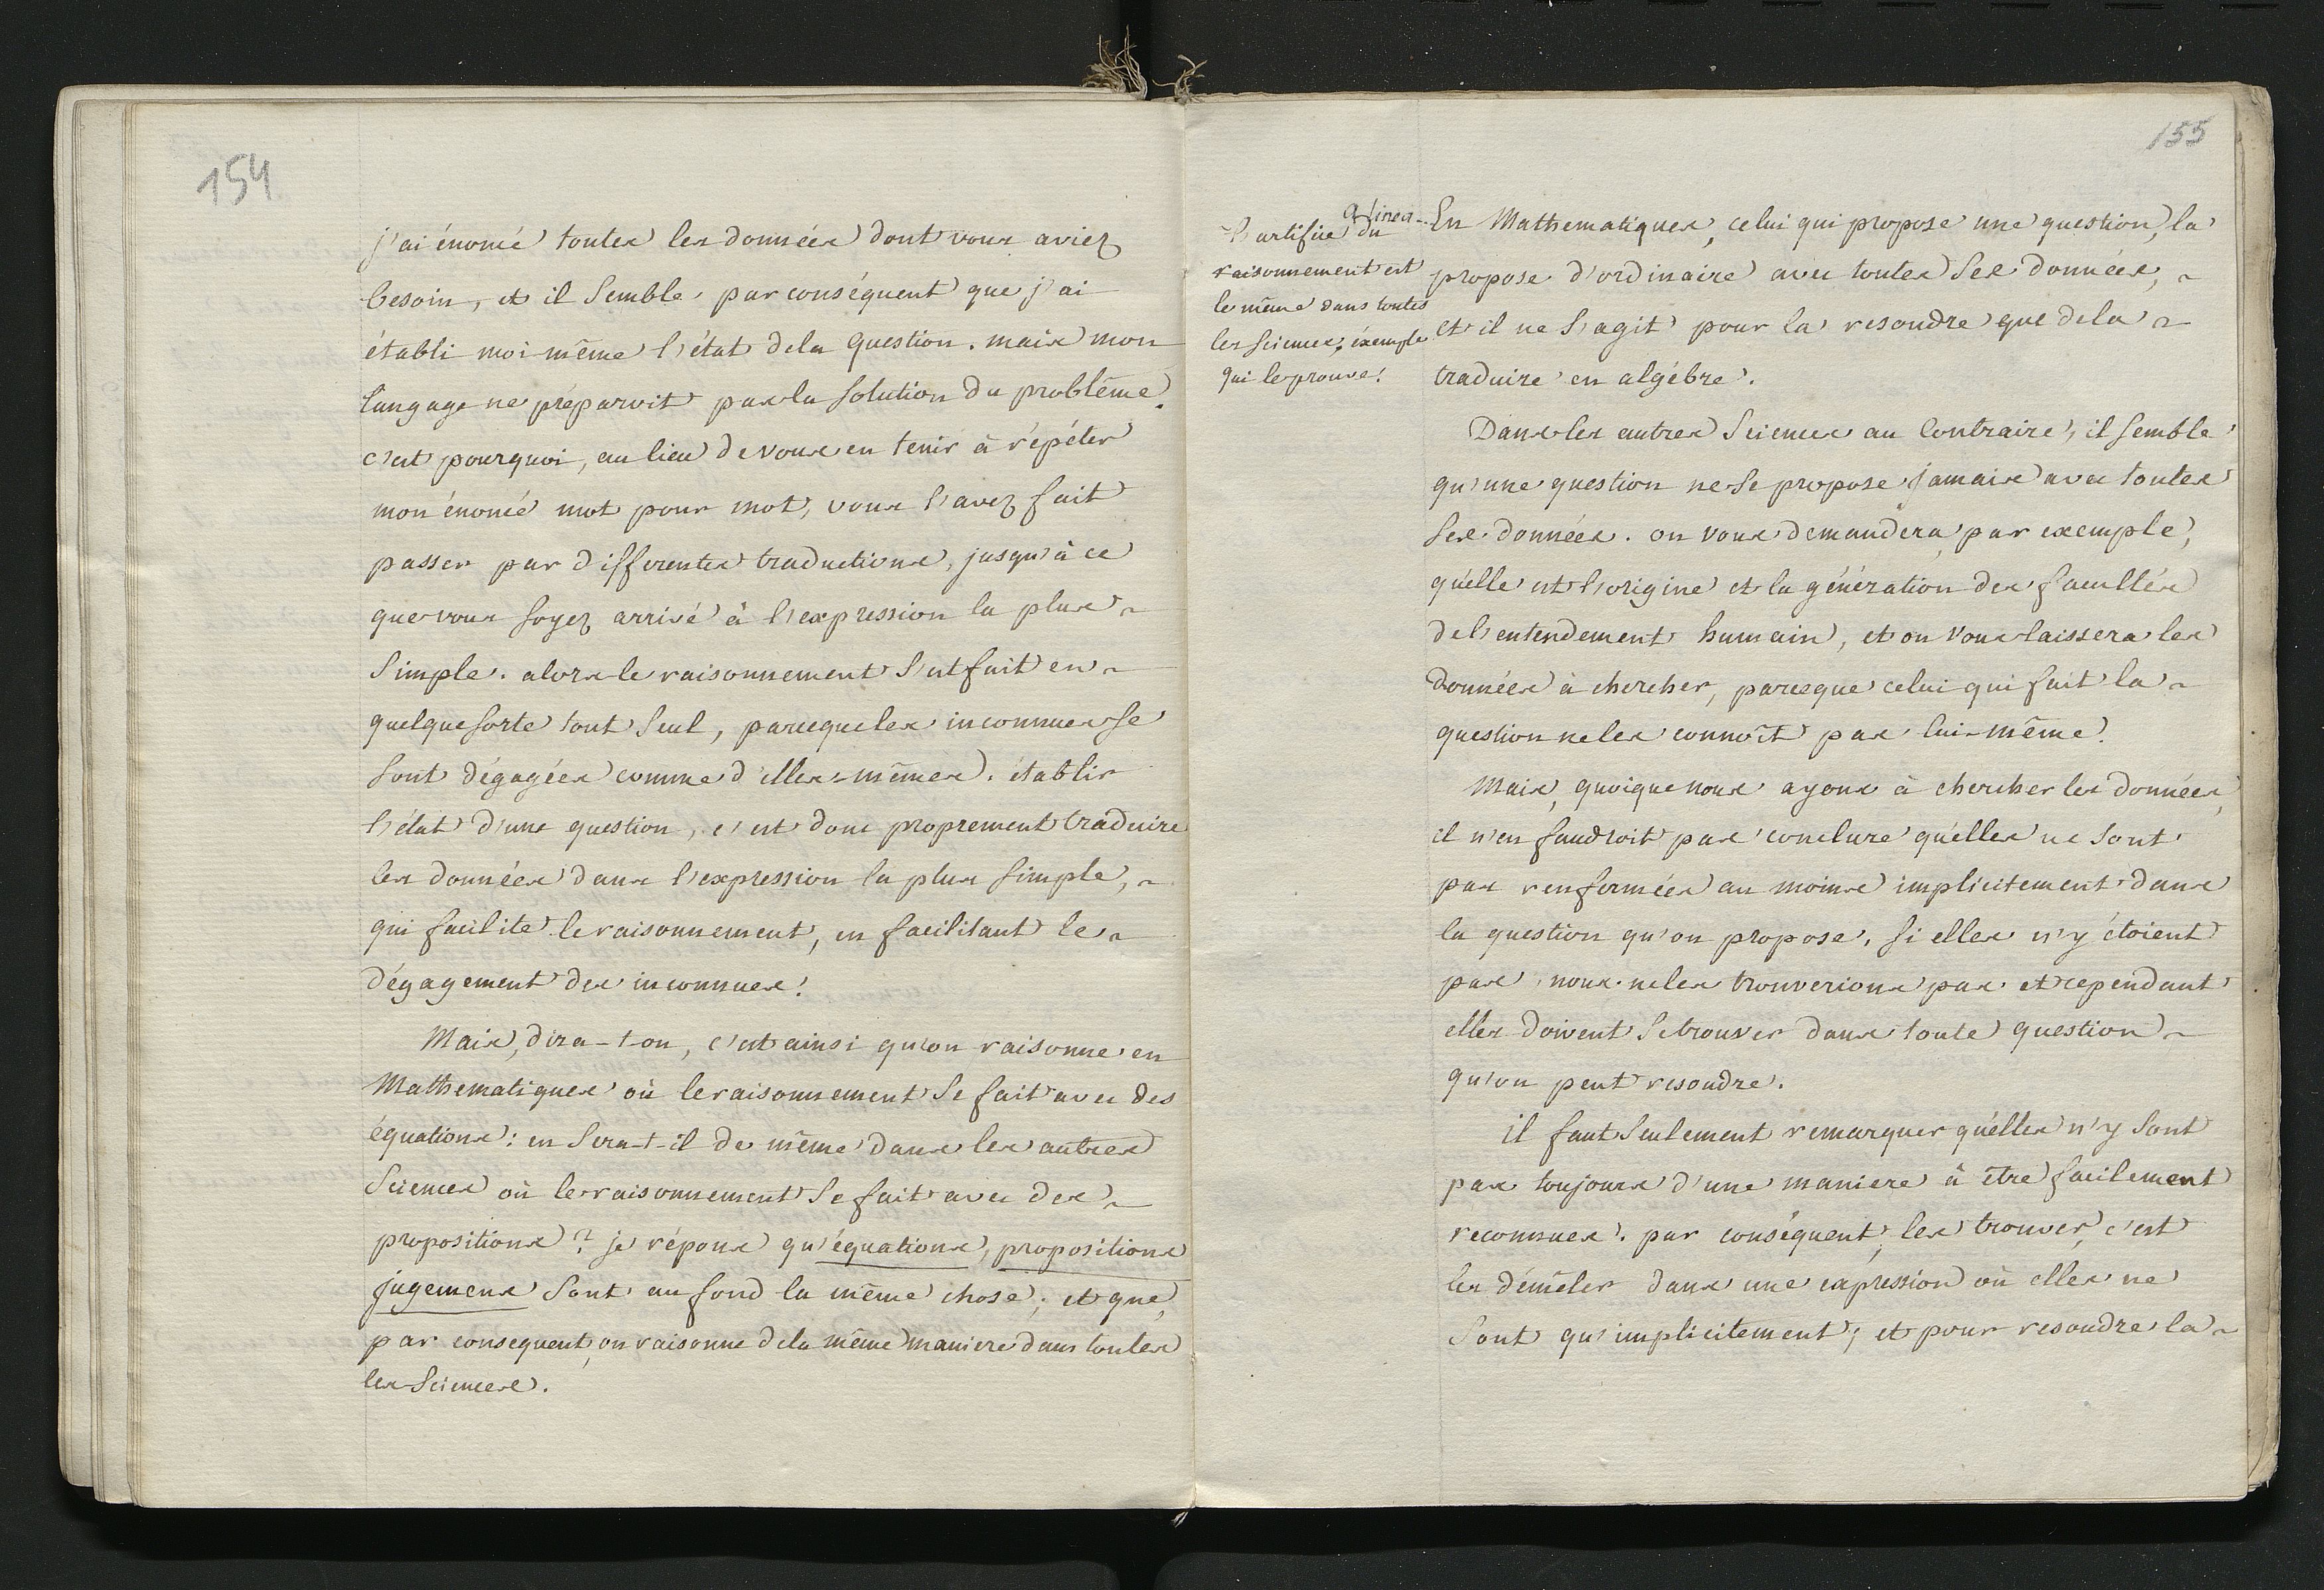 154
j'ai énoncé toutes les données dont vous aviez
besoin, et il semble par conséquent que j'ai
établi moi même l'état de la question. mais mon
langage ne préparoit pas la solution du problême.
c'est pourquoi, au lieu de vous en tenir à répéter
mon énoncé mot pour mot, vous l'avez fait
passer par differentes traductions, jusqu'à ce
que vous soyez arrivé à l'expression la plus
simple. alors le raisonnement s'est fait en
quelque sorte tout seul, parceque les inconnues se
sont dégagées comme d'elles-mêmes. établir
l'état d'une question, c'est donc proprement traduire
les données dans l'expression la plus simple,
qui facilite le raisonnement, en facilitant le
dégagement des inconnues.
Mais, dira-t-on, c'est ainsi qu'on raisonne en
Mathematiques où le raisonnement se fait avec des
équations: en sera-t-il de même dans les autres
Sciences où le raisonnement se fait avec des
propositions? je répons qu'équations, propositions
jugemens sont au fond la même chose; et que,
par consequent, on raisonne de la même maniere dans toutes
les Sciences.
155
a linea
l'artifice du
raisonnement est
le même dans toutes
les sciences; éxemple
qui le prouve.
En Mathematiques, celui qui propose une question, la
propose d'ordinaire avec toutes ses données,
et il ne s'agit pour la resoudre que de la
traduire en algébre.
Dans les autres Sciences au Contraire, il semble
qu'une question ne se propose jamais avec toutes
ses données. on vous demandera, par exemple,
qu'elle est l'origine et la génération des facultés
de l'entendement humain, et on vous laissera les
données à chercher, parceque celui qui fait la
question ne les connoît pas lui-même.
Mais, quoique nous ayons à chercher les données,
il n'en faudroit pas conclure qu'elles ne sont
pas renfermées au moins implicitement dans
la question qu'on propose. si elles n'y étoient
pas, nous ne les trouverions pas et cependant
elles doivent se trouver dans toute question
qu'on peut resoudre.
il faut seulement remarquer qu'elles n'y sont
pas toujours d'une maniere à être facilement
reconnues. par conséquent, les trouver, c'est
les démêler dans une expression où elles ne
sont qu'implicitement; et pour resoudre la